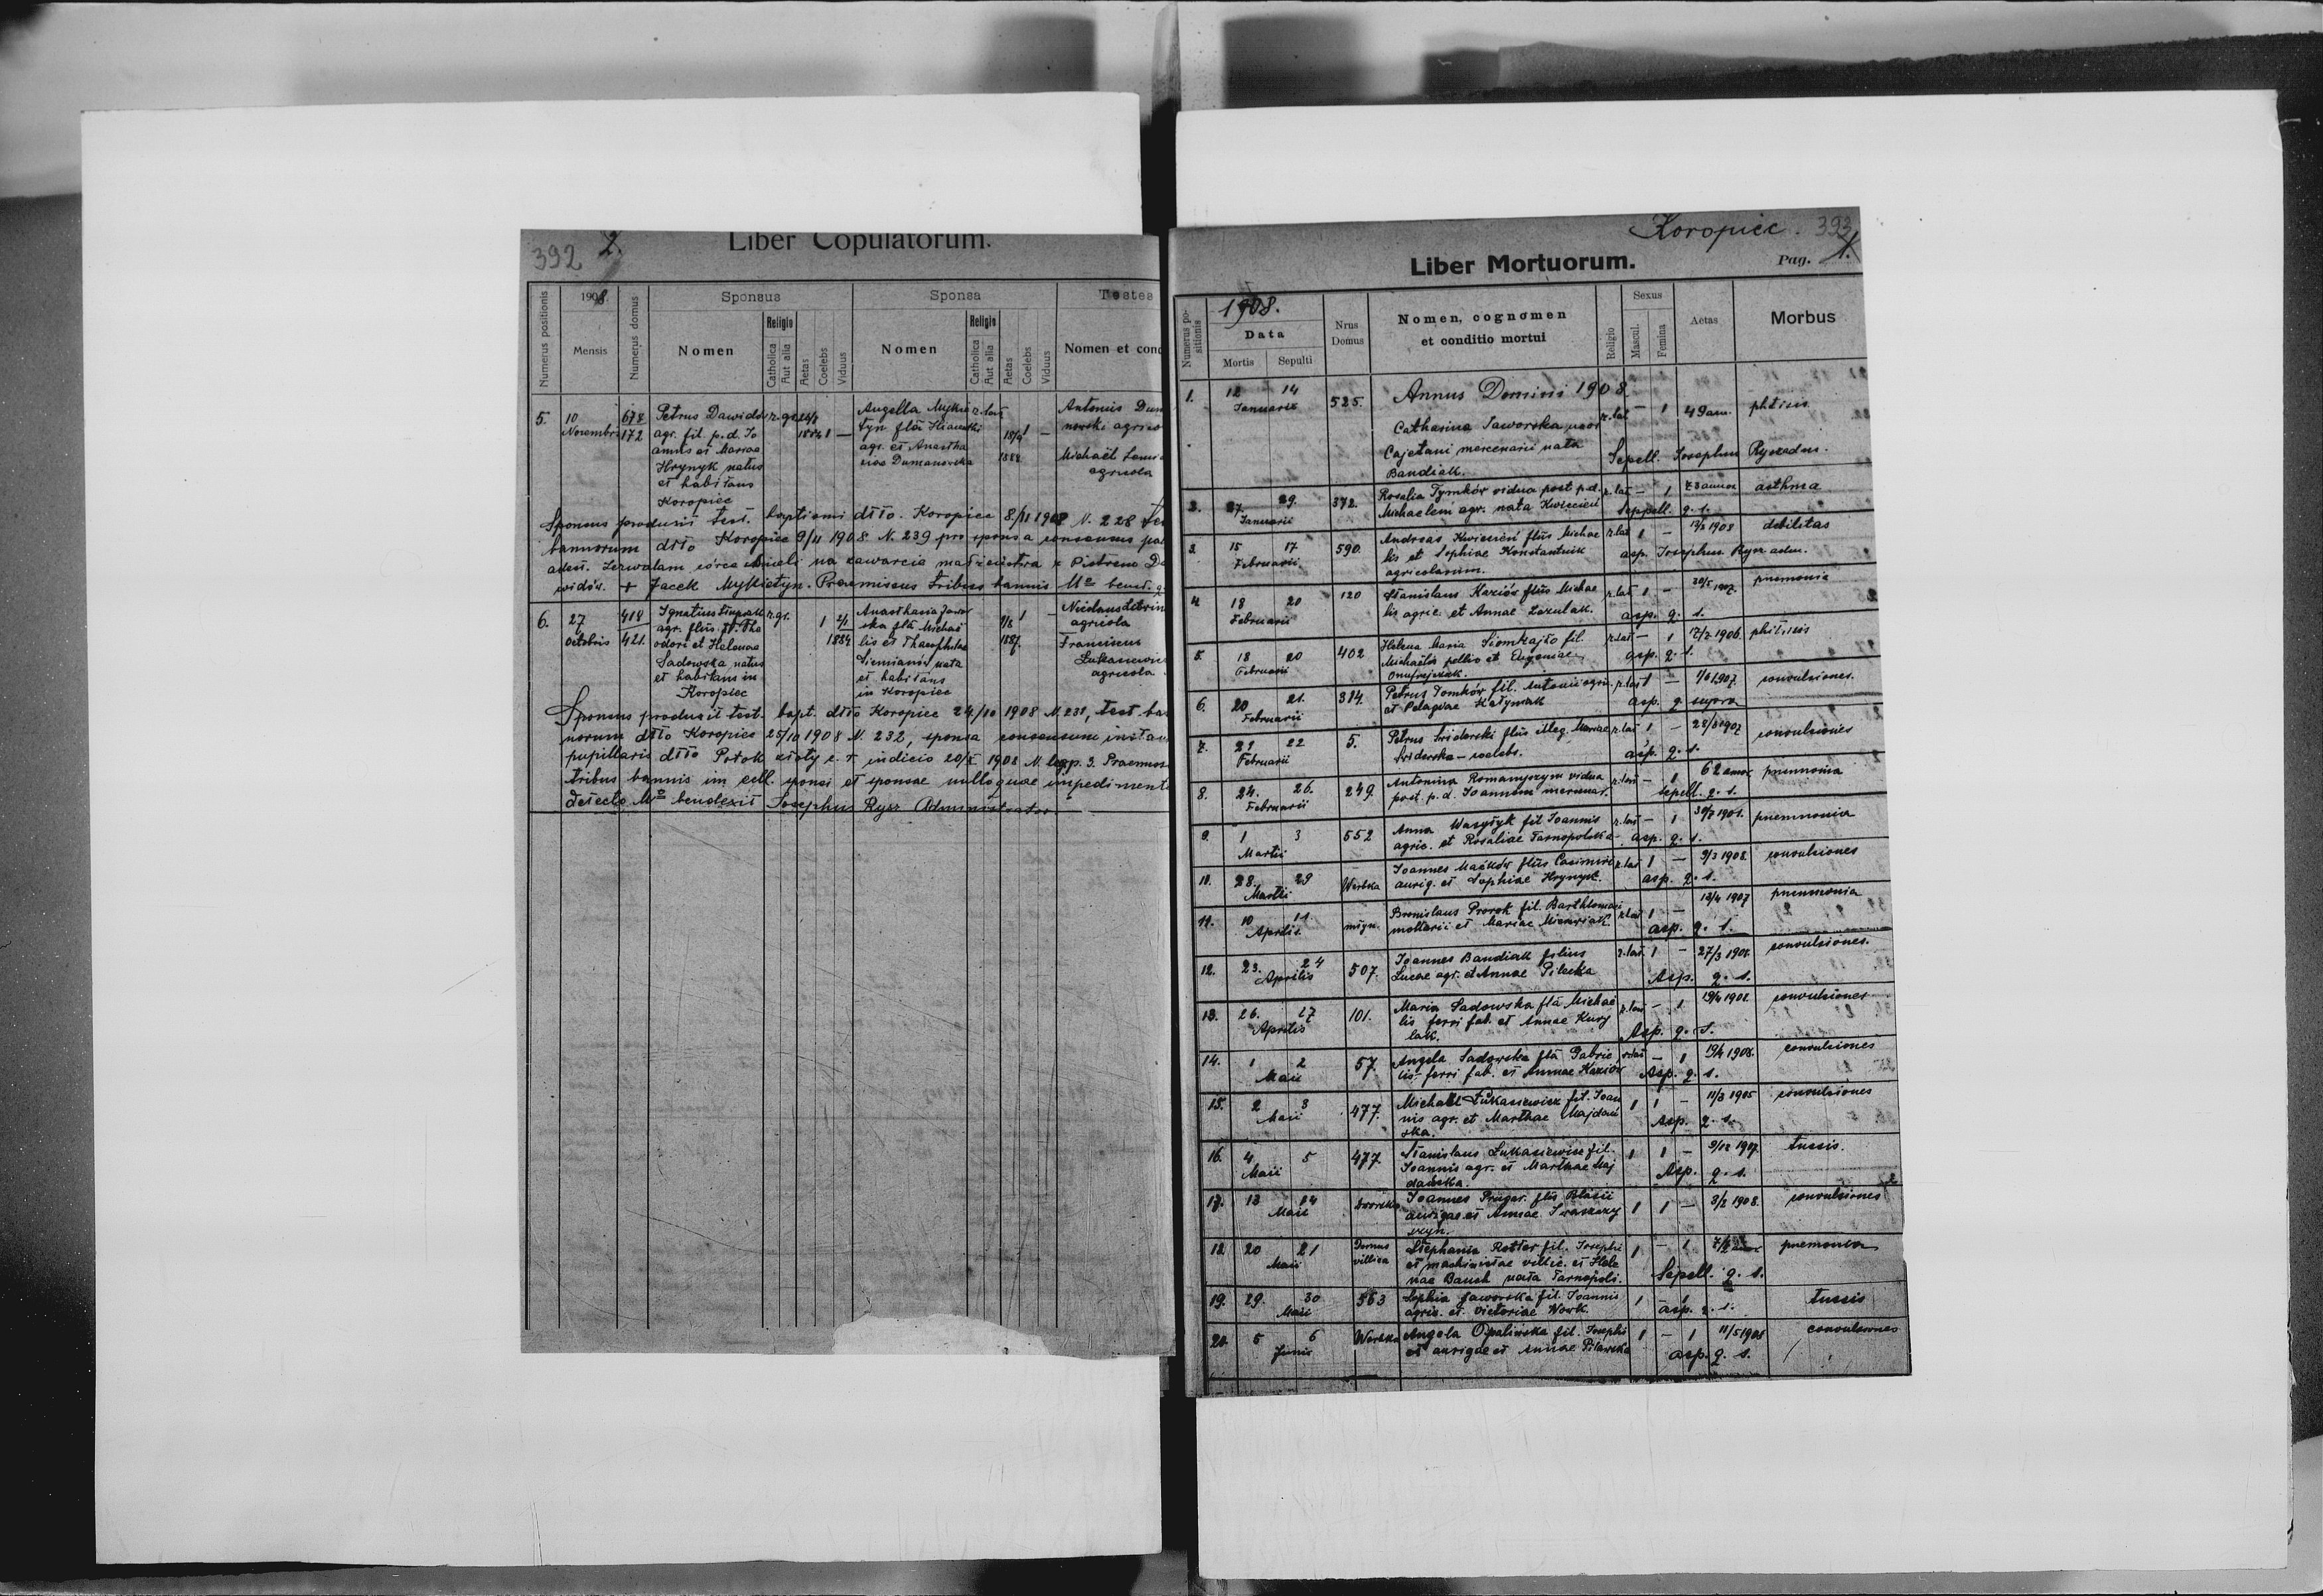 392 2.
Liber Copulatorum.
Numerus positionis
1908.
Mensis
Numerus domus
Sponsus
Nomen
Religio
Catholica
Aut alia
Aetas
Coelebs
Viduus
Sponsa
Nomen
Religio
Catholica
Aut alia
Aetas
Coelebs
Viduus
Testes
Nomen et cond
5. 10 678 Petrus Dawidów r.gr. 26/8 Angella Mykie r. lat Antonius Dum
Novembris 172 agr. fil. p.d. Jo 1884 1 — tyn fla Hiacinthi 18/9 1 — nowski agrico
annis et Mariae agr. et Anastha 1888 Michaël
Hrynyk natus siae Dumanowska agricola
et habitans
Koropiec
Sponsus produxit test. baptismi dtto. Koropiec 8/11 1908 N. 228
bannorum dtto Koropiec 9/11 1908 N. 239 pro sponsa consensus pa
adest. Zezwalam córce Anieli na zawarcie małżeństwa z Piotrem Da
widów. + Jacek Mykietyn. Praemissus tribus bannis Mo bened.
6. 27 418 Ignatius r.gr. Anasthasia Jawor Nicolaus
Octobris 421. agr. flius Theo 1 2/1 ska fla Michaë 9/8 1 — agricola
odori et Helenae 1884 lis et Theophilae 1887. Franciscus
Sadowska natus Siemianów nata Łukasiewicz
et habitans in et habitans agricola
Koropiec in Koropiec
Sponsus produxit test. bapt. dtto Koropiec 24/10 1908 N. 231, test. ban
norum dtto Koropiec 25/10 1908 N. 232, sponsa consensum
pupillaris dtto Potok złoty c. r. iudicio 20/X 1908 N. 3. Praemiss
tribus bannis in eccl. sponsi et sponsae nulloque impedimento
detecto Mo benedixit Josephus Rysz Administrator.
Koropiec. 393
Liber Mortuorum. Pag. 1.
Numerus po-
sitionis
1908.
Data
Mortis Sepulti
Nrus
Domus
Nomen, cognomen
et conditio mortui
Religio
Sexus
Mascul.
Femina
Aetas
Morbus
Annus Domini 1908
1. 12 14 Januarii 525. Catharina Jaworska uxor r. lat — 1 49 ann. phtisis
Cajetani mercenarii nata
Bandiak. Sepell. Josephus Rysz adm.
2. 27 29 Januarii 372. Rosalia Tymków vidua post p.d. r. lat — 1 73 annor asthma
Michaelem agr. nata Kwiecień Seppell. q. s.
3. 15 17 Februarii 590. Andreas Kwiecień flius Michae r. lat 1 — 1908 debilitas
lis et Sophiae Konstantnik asp. Josephus Rysz adm.
agricolarum.
4. 18 20 Februarii 120 Stanislaus Kaziów flius Michae r. lat 1 — 30/5 1907. pnemonia
lis agric. et Annae Lazulak. asp. q. s.
5. 18 20 Februarii 402 Helena Maria Siomkajło fil. r. lat — 1 7/7 1906. phitisis
Michaëlis pellio et Eugeniae asp. q. s.
Onufrejczuk.
6. 20 21. Februarii 384. Petrus Tomków fil. Antonii agric. r. lat 1 — 1/6 1907. convulsiones.
et Pelagiae Hałymak asp. q supra
7. 21 22 Februarii 5. Petrus Swiderski flius illeg. Mariae r. lat 1 — 28/8 1907 convulsiones
Swiderska — coelebs. asp. q. s.
8. 24. 26. Februarii 249. Antonina Romanyszyn vidua r. lat — 1 62 annor pneumonia
post. p. d. Joannem mercenar. sepell. q. s.
9. 1 3 Martii 552 Anna Wasyłyk fil Joannis r. lat — 1 30/7 1901. pnemnonia
agric. et Rosaliae Tarnopolska asp. q. s.
10. 28. 29 Martii Werbka Joannes Maćków flius Casimiri r. lat 1 — 9/3 1908. convulsiones
aurig. et Sophiae Hrynyk. asp. q. s.
11. 10 11 Aprilis młyn. Bronislaus Prorok fil. Barthlomaei r. lat 1 — 13/4 1907 pneumonia
molitarii et Mariae asp. q. s.
12. 23. 24 Aprilis 507. Joannes Bandiak filius r. lat. 1 — 27/3 1908. convulsiones.
Lucae agr. et Annae Pilecka Asp. q. s.
13. 26. 27 Aprilis 101. Maria Sadowska fla Michaë r. lat — 1 19/4 1908. convulsiones
lis ferri fab. et Annae Kury Asp. q. s.
lak.
14. 1 2 Maii 57. Angela Sadowska fla Gabrie r. lat — 1 19/4 1908. convulsiones
lis ferri fab. et Annae Kaziów Asp. q. s.
15. 2 3 Maii 477. Michaël Łukasiewicz fil. Joan 1 1 — 11/3 1905 convulsiones
nis agr. et Marthae Majdań Asp. q. s.
ska.
16. 4 5 Maii 477. Stanislaus Łukasiewicz fil. 1 1 — 9/12 1907. tussis.
Joannis agr. et Marthae Maj Asp. q. s.
dańska.
17. 13 14 Maii Dworska Joannes Prugar. flius Blasii 1 1 — 3/2 1908. convulsiones
aurigae et Annae Iwaszczy
szyn.
18. 20 21 Maii Domus villica Stephania Rotter fil. Josephi 1 — 1 pnemonia
et machinistae villic. et Hele
nae Bauch nata Tarnopoli. Sepell. q. s.
19. 29. 30 Maii 563 Sophia Jaworska fil. Joannis 1 tussis
agric. et. Victoriae Nowk. asp. q. s.
20. 5 6 Junii Werbka Angela Opaliwska fil. Josephi 1 — 1 11/5 1908 convulsiones
et aurigae et Annae Pilawska asp. q. s.